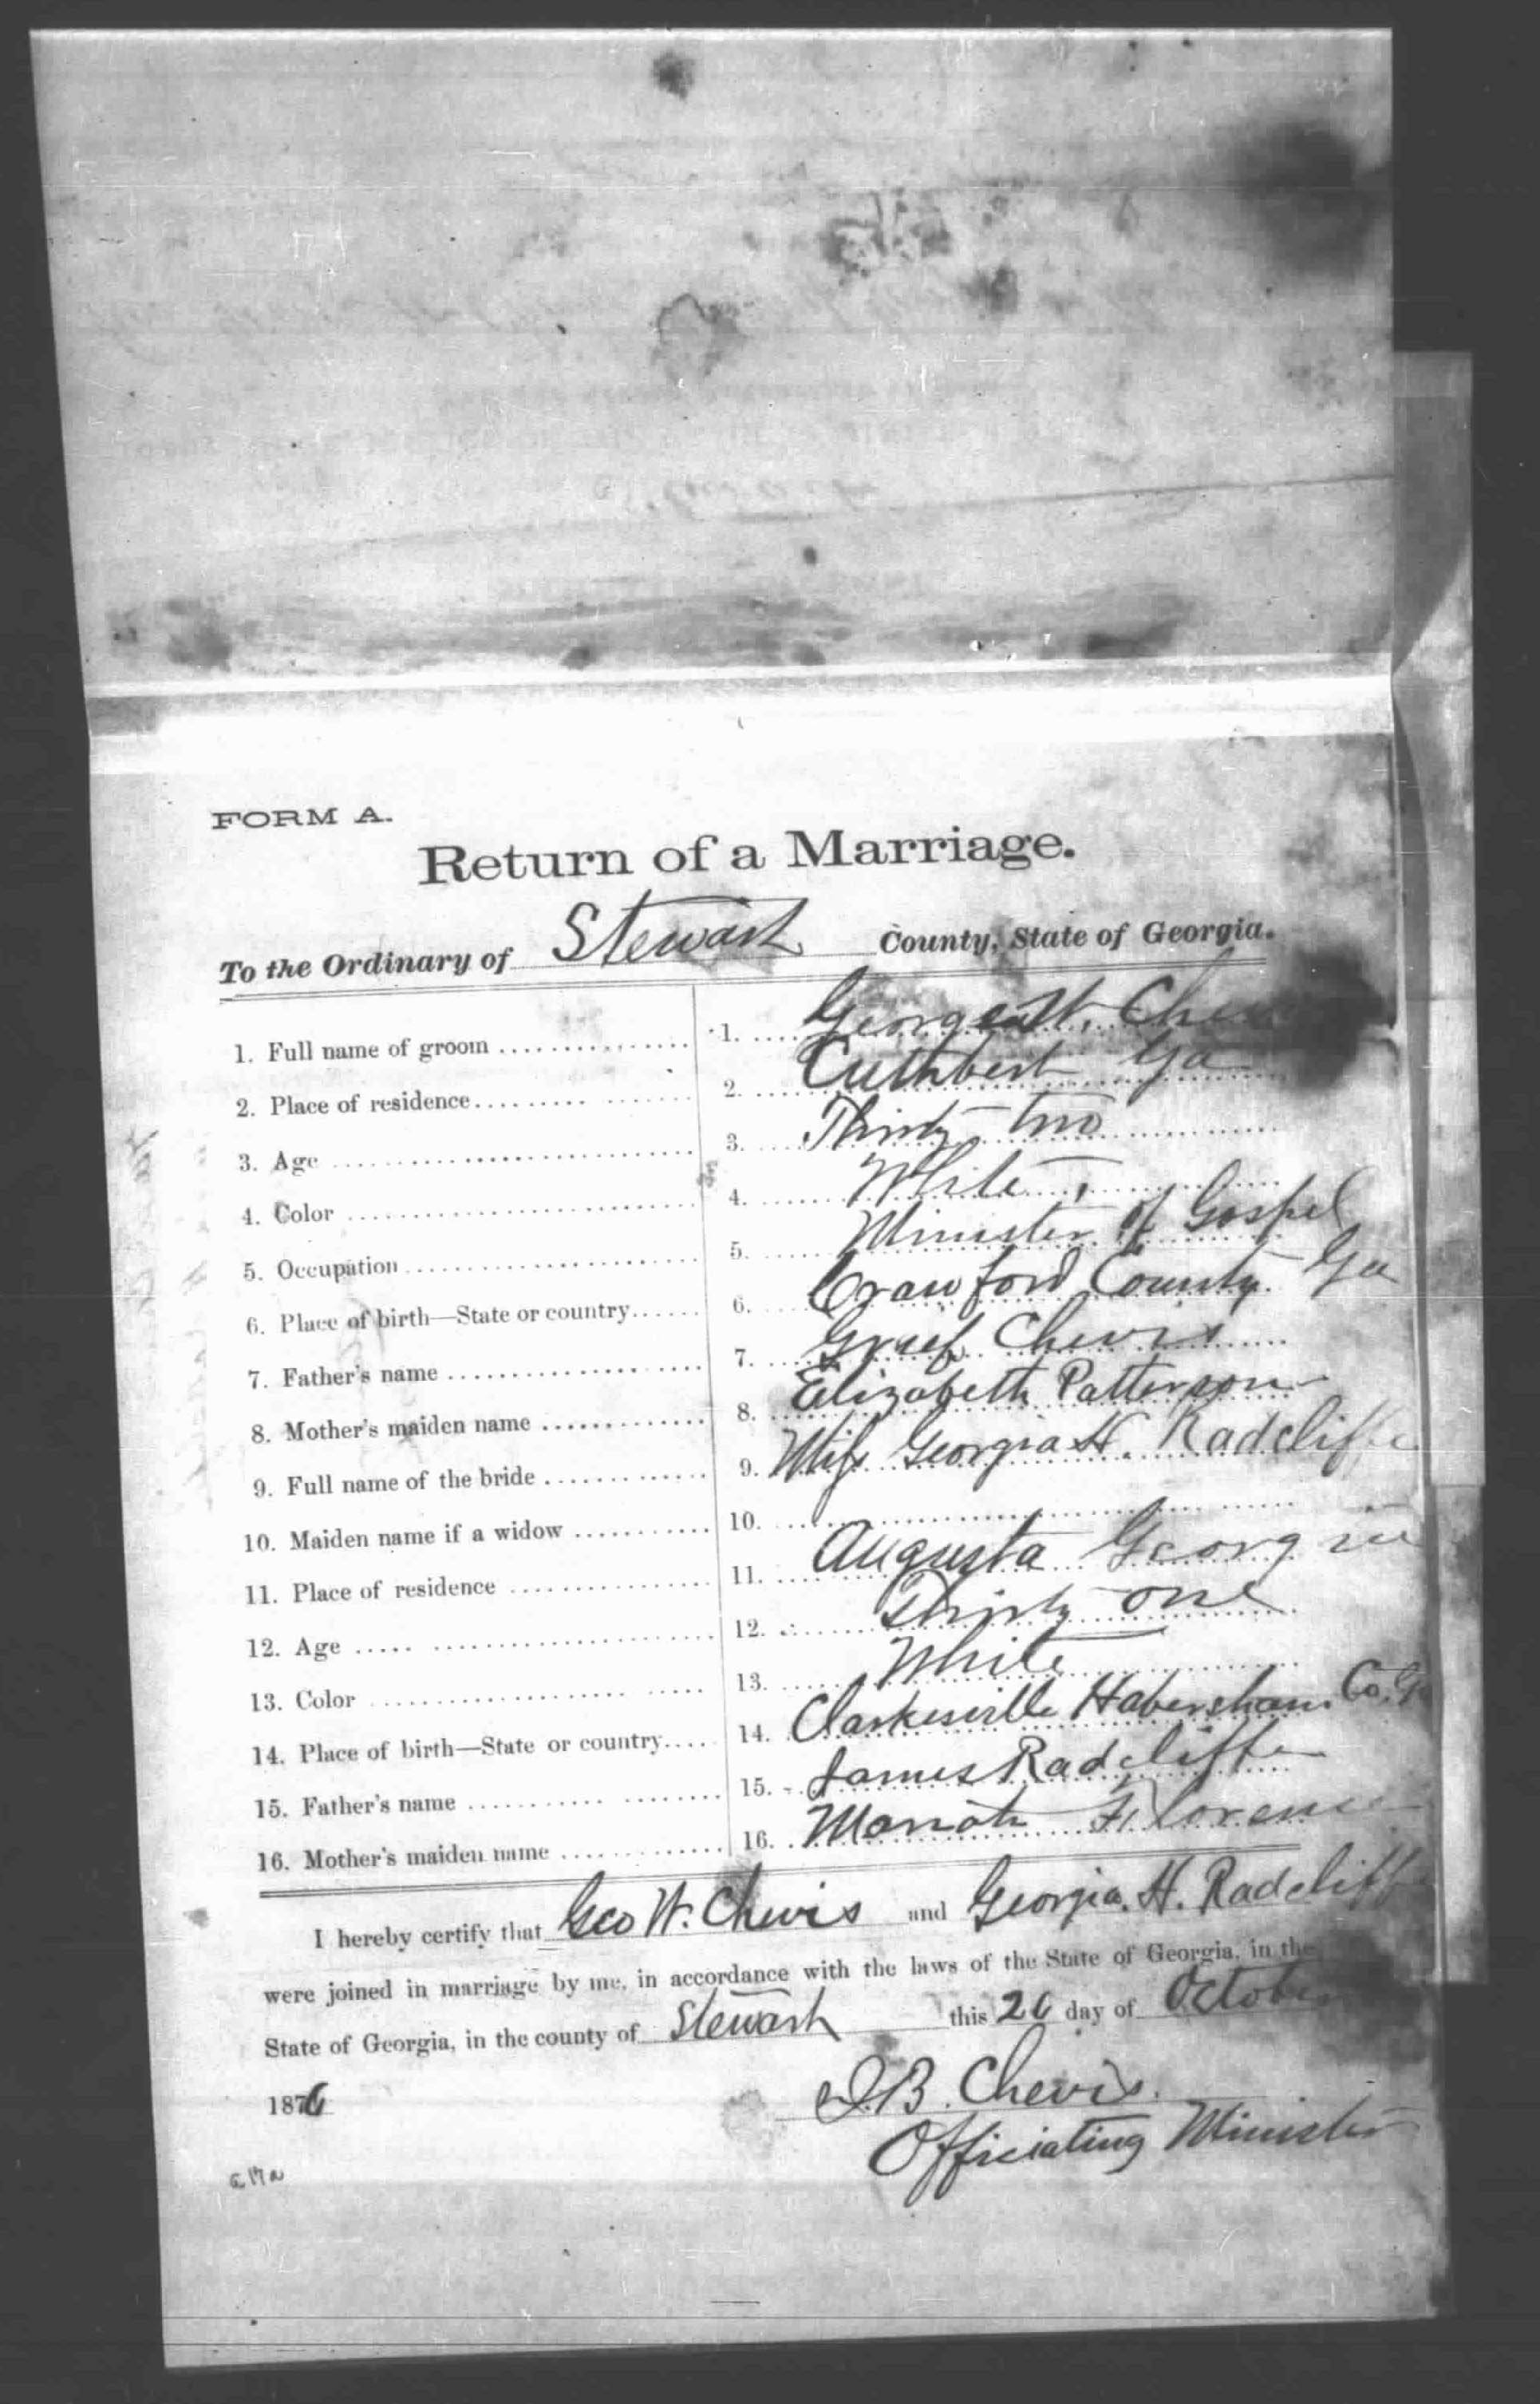 FORM A.
Return of a Marriage.
To the Ordinary of Stewart County, State of Georgia.
1. Full name of groom 1. George W.
2. Place of residence 2. Cuthbert Ga
3. Age 3. Thirty two
4. Color 4. White
5. Occupation 5. Minister of Gospel
6. Place of birth—State or country 6. Crawford County Ga
7. Father's name 7. Chevis
8. Mother's maiden name 8. Elizabeth Patterson
9. Full name of the bride 9. Miss Georgia H. Radcliffe
10. Maiden name if a widow 10.
11. Place of residence 11. Augusta Georgia
12. Age 12. Thirty one
13. Color 13. White
14. Place of birth—State or country 14. Clarkesville Habersham Co. Ga
15. Father's name 15. James Radcliffe
16. Mother's maiden name 16. Mariah Florence
I hereby certify that Geo W. Chevis and Georgia H. Radcliffe
were joined in marriage by me, in accordance with the laws of the State of Georgia, in the
State of Georgia, in the county of Stewart this 26 day of October
1876
Chevis.
Officiating Minister